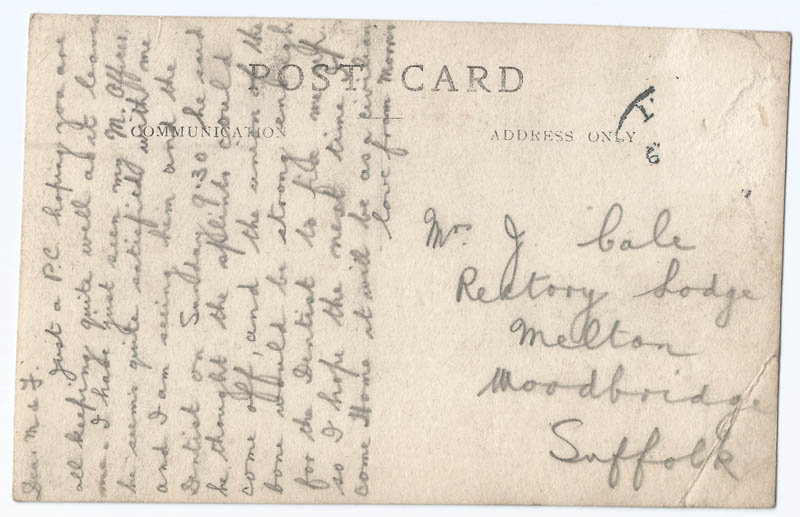 POST CARD
COMMUNICATION
ADDRESS ONLY
Dear M & F.
Just a P.C. hoping you are
all keeping quite well as it leaves
me. I have just seen my M. Officer,
he seems quite satisfied with me
and I am seeing him and the
Dentist on Sunday 9.30 he said
he thought the splints could
come off, and the union of the
bone would be strong enough
for the Dentist to fix me up.
so I hope the next time I
come Home it will be as a civilian
love from
Mr. J. Cale
Rectory Lodge
Melton
Woodbridge
Suffolk